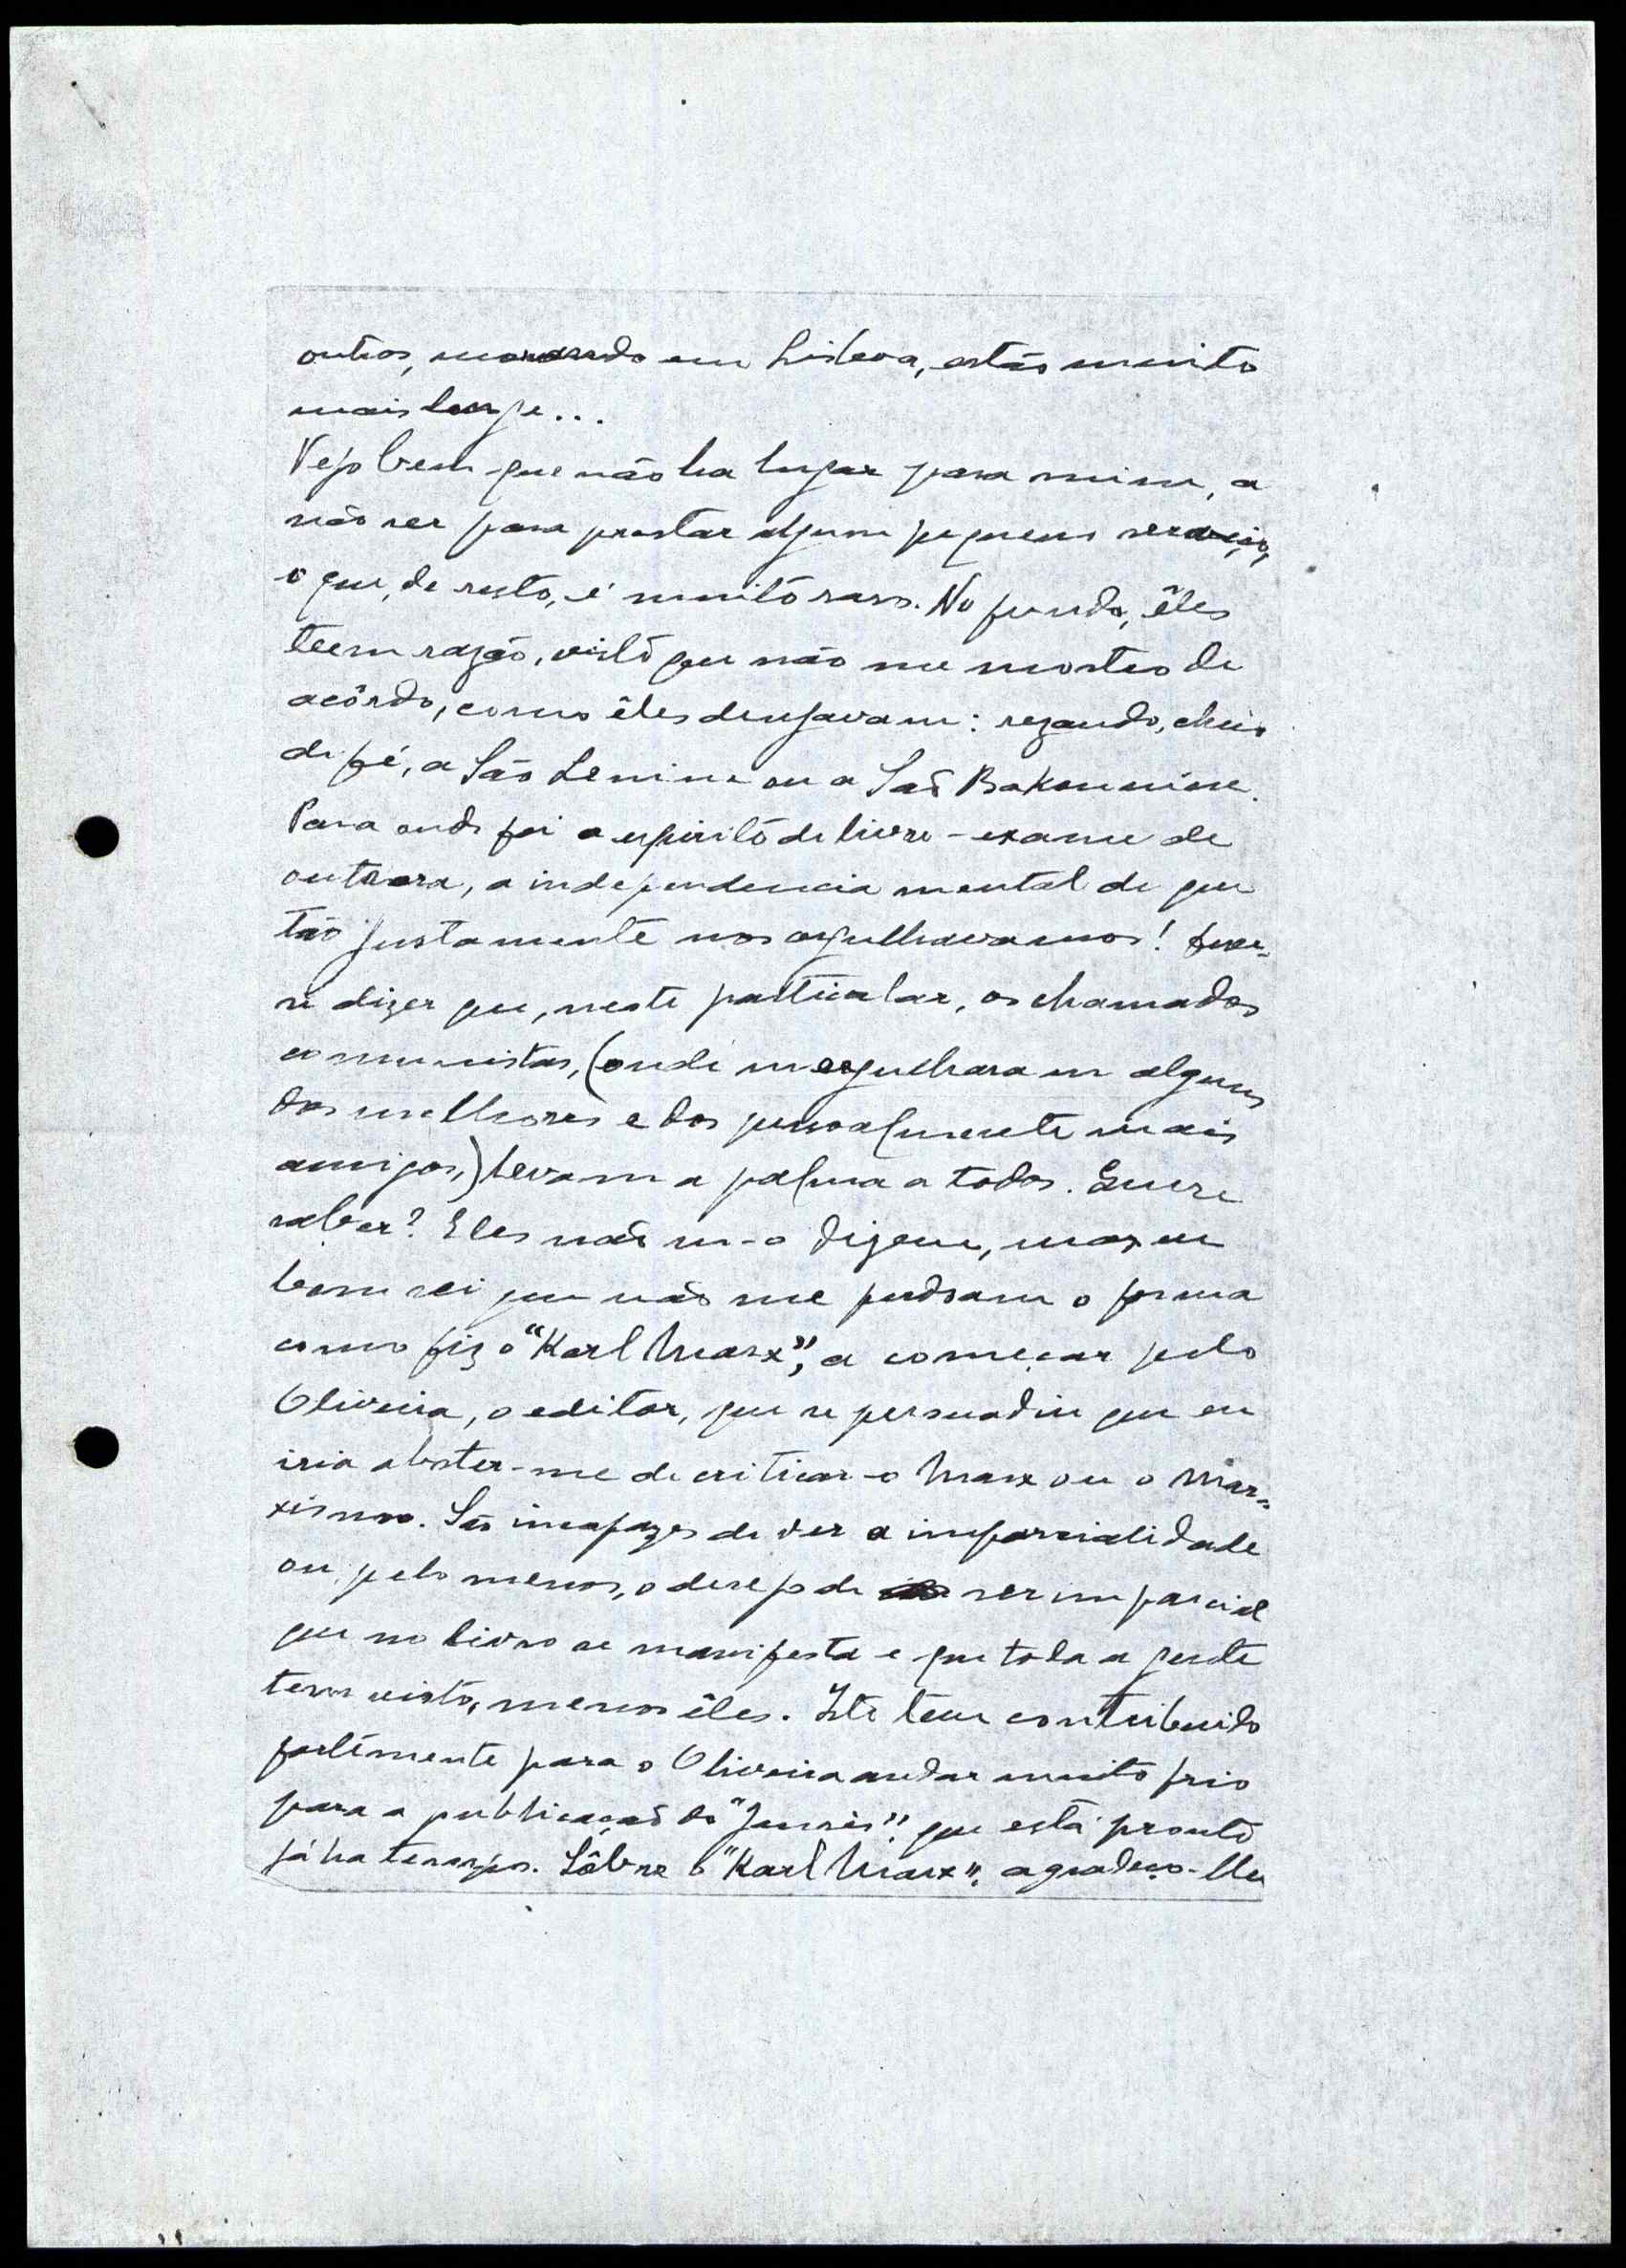 outros, morando em Lisboa, estão muito
mais longe...
Vejo bem que não ha lugar para mim, a
não ser para prestar algum pequeno serviço,
o que, de resto, é muito raro. No fundo, êles
teem razão, visto que não me mostro de
acôrdo, como êles desejavam: rezando, cheio
de fé, a São Lenine ou a São Bakounine.
Para onde foi o espirito de livre-exame de
outrora, a independencia mental de que
tão justamente nos orgulhavamos! Deve-
se dizer que, neste particular, os chamados
comunistas, (onde mergulharam alguns
dos melhores e dos pessoalmente mais
amigos,) levam a palma a todos. Quere
saber? Eles não m-o dizem, mas eu
bem sei que não me perdoam a forma
como fiz o "Karl Marx", a começar pelo
Oliveira, o editor, que se persuadiu que eu
iria abster-me de criticar o Marx ou o mar-
xismo. São incapazes de ver a imparcialidade
ou, pelo menos, o desejo de ser imparcial
que no livro se manifesta e que toda a gente
tem visto, menos êles. Isto tem contribuido
fortemente para o Oliveira andar muito frio
para a publicação do "Jaurès", que está pronto
já ha tempos. Sôbre o "Karl Marx", agradeço-lhe